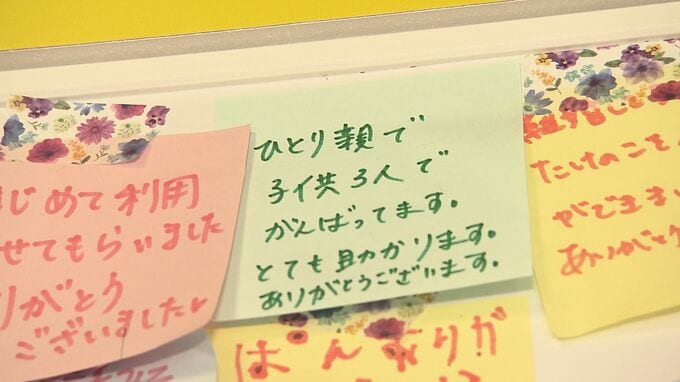 じめて利用
せてもらいました
りがとう
ございました
ひとり親で
子供3人で
がんばってます。
とても助かります。
ありがとうございます。
たけのこを
ができまし
ありがとう
ぱんありが